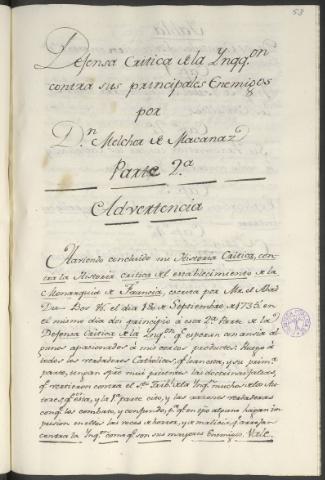 53
Defensa Critica de la Ynqq.on
contra sus principales Enemigos
por
D.n Melchor de Macanaz
Parte 2.a
Advertencia
Haviendo concluido mi Historia Critica, con-
tra la Historia critica del establecimiento de la
Monarquia de Francia, escrita por Mr. el Abad
Du Bos &. el dia 18 de Septiembre de 1736. en
el mismo dia doi principio a esta 2.a Parte de la
Defensa Critica de la Ynq.on q.e esperan con ansia al-
gunos apasionados à mis cortos productos. Ruego à
todos los verdaderos Catholicos, q.e lean esta, y su prime-
ra parte, tengan
repitieron contra el S.to Trib.l de la Ynq.on muchos de los Au-
tores, q.e esta, y la 1.a parte cito, y las razones verdaderas
conq.e los combato, y confundo, p.a q.e en
presion
contra la Ynq.on como q.e son sus mayores Enemigos. Vale.